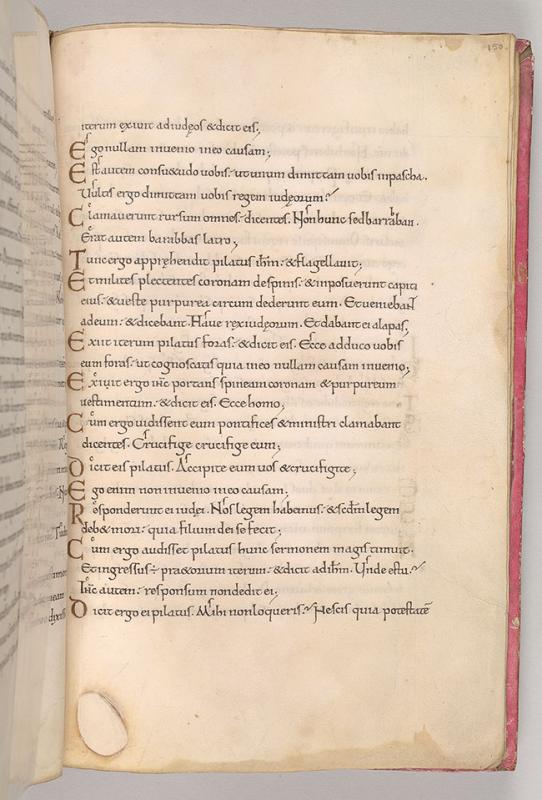 150
iterum exiuit ad iudęos & dicit eis;
Ego nullam inuenio in eo causam;
Est autem consu&udo uobis. ut unum dimittam uobis in pascha.
Vultis ergo dimittam uobis regem iudęorum?
Clamauerunt rursum omnes. dicentes. Non hunc sed barraban.
Erat autem barabbas latro;
Tunc ergo appręhendit pilatus ihm. & flagellauit;
Et milites plectentes coronam de spinis. & imposuerunt capiti
eius. & ueste purpurea circum dederunt eum. Et ueniebant
ad eum. & dicebant. Haue rex iudęorum. Et dabant ei alapas;
Exiit iterum pilatus foras. & dicit eis. Ecce adduco uobis
eum foras. ut cognoscatis quia in eo nullam causam inuenio;
Exiuit ergo ihc portans spineam coronam & purpureum
uestimentum. & dicit eis. Ecce homo;
Cum ergo uidissent eum pontifices & ministri clamabant
dicentes. Crucifige crucifige eum;
Dicit eis pilatus. Accipite eum uos & crucifigite;
Ego enim non inuenio in eo causam;
Responderunt ei iudęi. Nos legem habemus. & scdm legem
deb& mori. quia filium dei se fecit;
Cum ergo audisset pilatus hunc sermonem magis timuit.
Et ingressus. pr&orium iterum. & dicit ad ihm. Vnde es tu?
Ihc autem. responsum non dedit ei;
Dicit ergo ei pilatus. Mihi non loqueris? Nescis quia potestatē